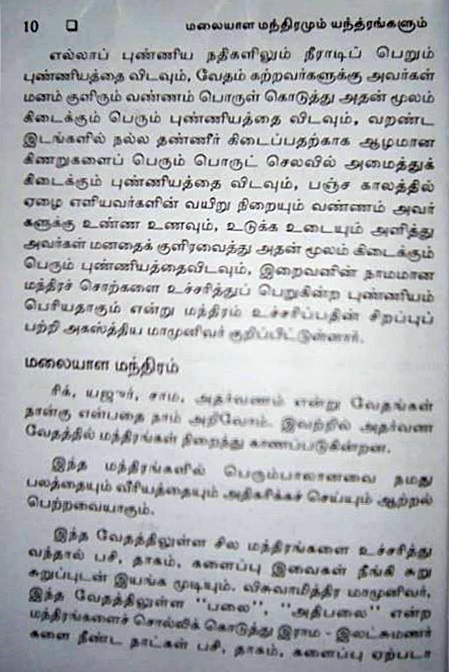 10 ❑ மலையாள மந்திரமும் யந்த்ரங்களும்
எல்லாப் புண்ணிய நதிகளிலும் நீராடிப் பெறும்
புண்ணியத்தை விடவும், வேதம் கற்றவர்களுக்கு அவர்கள்
மனம் குளிரும் வண்ணம் பொருள் கொடுத்து அதன் மூலம்
கிடைக்கும் பெரும் புண்ணியத்தை விடவும், வறண்ட
இடங்களில் நல்ல தண்ணீர் கிடைப்பதற்காக ஆழமான
கிணறுகளைப் பெரும் பொருட் செலவில் அமைத்துக்
கிடைக்கும் புண்ணியத்தை விடவும், பஞ்ச காலத்தில்
ஏழை எளியவர்களின் வயிறு நிறையும் வண்ணம் அவர்
களுக்கு உண்ண உணவும், உடுக்க உடையும் அளித்து
அவர்கள் மனதைக் குளிரவைத்து அதன் மூலம் கிடைக்கும்
பெரும் புண்ணியத்தைவிடவும், இறைவனின் நாமமான
மந்திரச் சொற்களை உச்சரித்துப் பெறுகின்ற புண்ணியம்
பெரியதாகும் என்று மந்திரம் உச்சரிப்பதின் சிறப்புப்
பற்றி அகஸ்த்திய மாமுனிவர் குறிப்பிட்டுள்ளார்.
மலையாள மந்திரம்
ரிக், யஜுர், சாம, அதர்வணம் என்று வேதங்கள்
நான்கு என்பதை நாம் அறிவோம். இவற்றில் அதர்வண
வேதத்தில் மந்திரங்கள் நிறைந்து காணப்படுகின்றன.
இந்த மந்திரங்களில் பெரும்பாலானவை நமது
பலத்தையும் வீரியத்தையும் அதிகரிக்கச் செய்யும் ஆற்றல்
பெற்றவையாகும்.
இந்த வேதத்திலுள்ள சில மந்திரங்களை உச்சரித்து
வந்தால் பசி, தாகம், களைப்பு இவைகள் நீங்கி சுறு
சுறுப்புடன் இயங்க முடியும். விசுவாமித்திர மாமுனிவர்,
இந்த வேதத்திலுள்ள "பலை", "அதிபலை" என்ற
மந்திரங்களைச் சொல்லிக் கொடுத்து இராம - இலட்சுமணர்
களை நீண்ட நாட்கள் பசி, தாகம், களைப்பு ஏற்படா